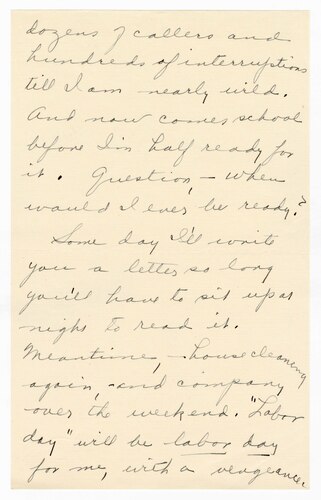 dozens of callers and
hundreds of interruptions
till I am nearly wild.
And now comes school
before I'm half ready for
it. Question, - when
would I ever be ready?
Some day I'll write
you a letter so long
you'll have to sit up at
night to read it.
Meantime, - housecleaning
again, - and company
over the weekend. "Labor
day" will be labor day
for me, with a vengeance